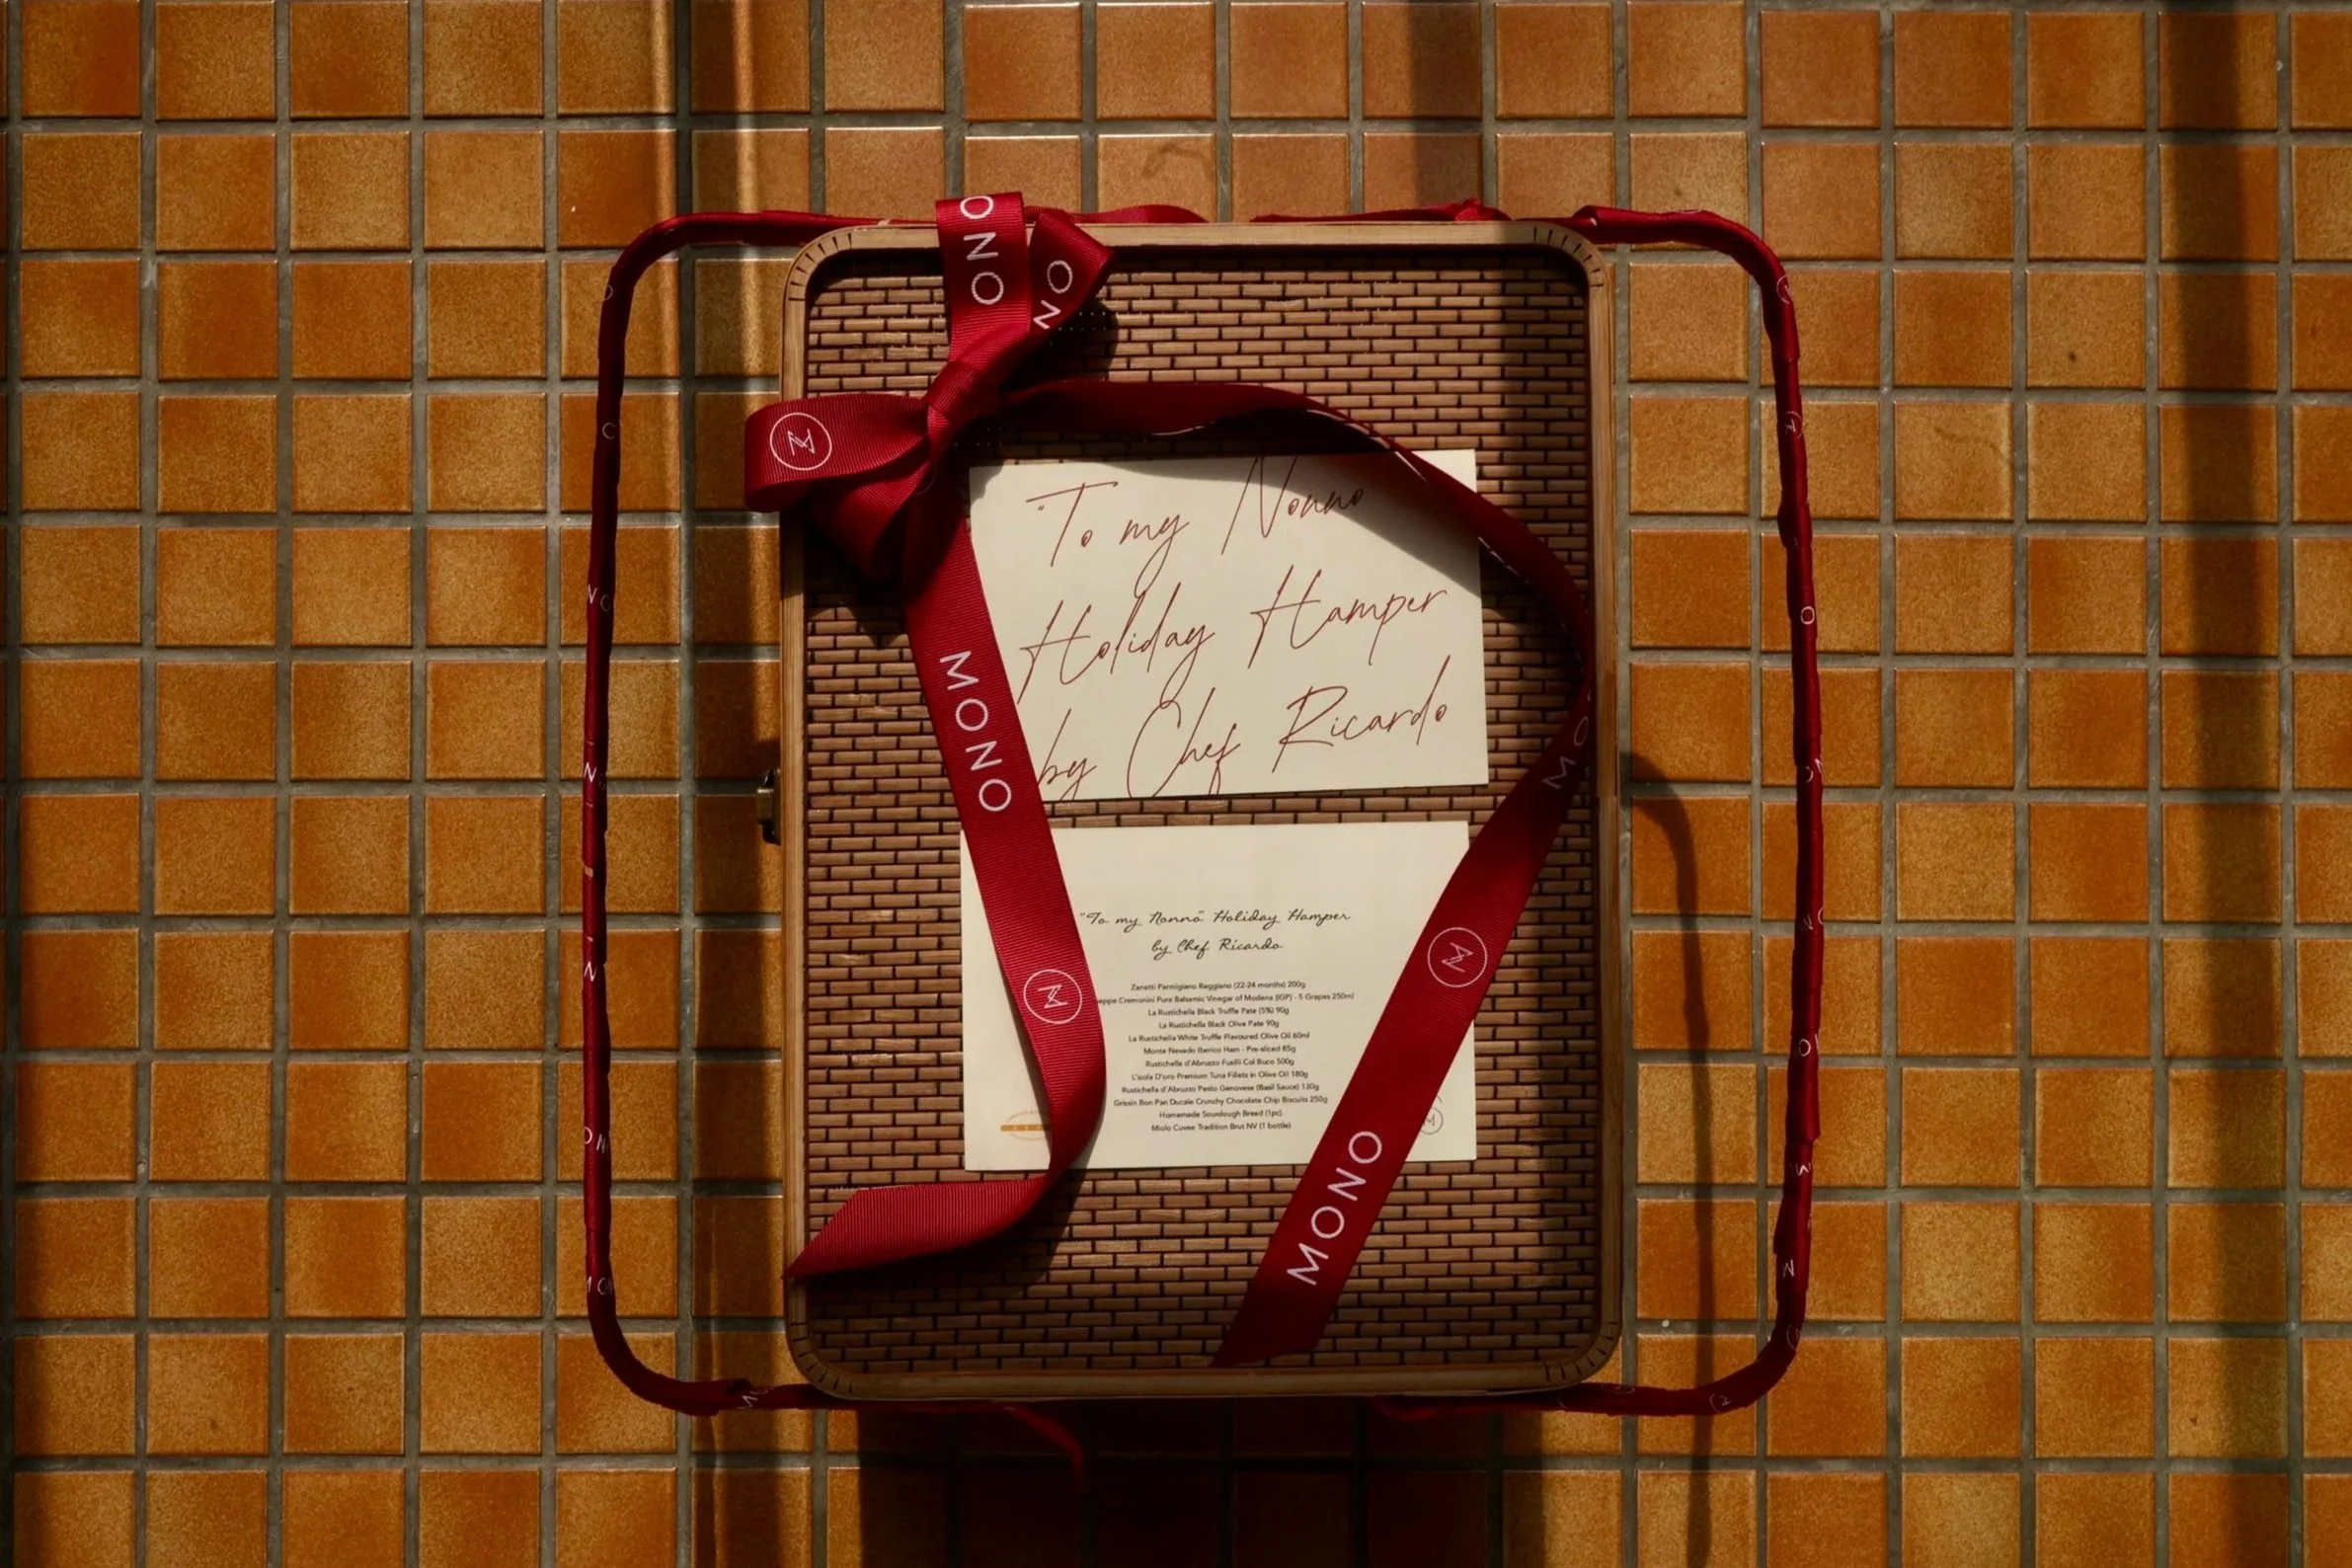 ONO
NO
"To my Nonno
Holiday Hamper
by Chef Ricardo
MONO
MO
"To my Nonno" Holiday Hamper
by Chef Ricardo
Zanetti Parmigiano Reggiano (22-24 months) 200g
Cremonini Pure Balsamic Vinegar of Modena (IGP) - 5 Grapes 250ml
La Rustichella Black Truffle Pate (5%) 90g
La Rustichella Black Olive Pate 90g
La Rustichella White Truffle Flavoured Olive Oil 60ml
Monte Nevado Iberico Ham - Pre-sliced 85g
Rustichella d'Abruzzo Fusilli Col Buco 500g
L'isola D'oro Premium Tuna Fillets in Olive Oil 180g
Rustichella d'Abruzzo Pesto Genovese (Basil Sauce) 130g
Grissin Bon Pan Ducale Crunchy Chocolate Chip Biscuits 250g
Homemade Sourdough Bread (1pc)
Miolo Cuvee Tradition Brut NV (1 bottle)
MONO